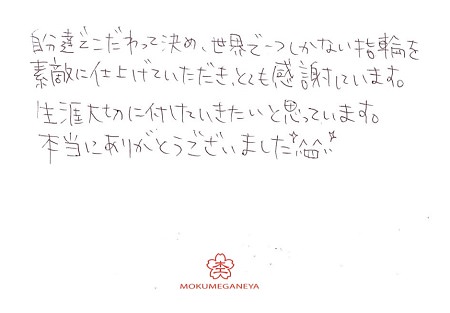 自分達でこだわって決め、世界で一つしかない指輪を
素敵に仕上げていただき、とても感謝しています。
生涯大切に付けていきたいと思っています。
本当にありがとうございました
杢
MOKUMEGANEYA